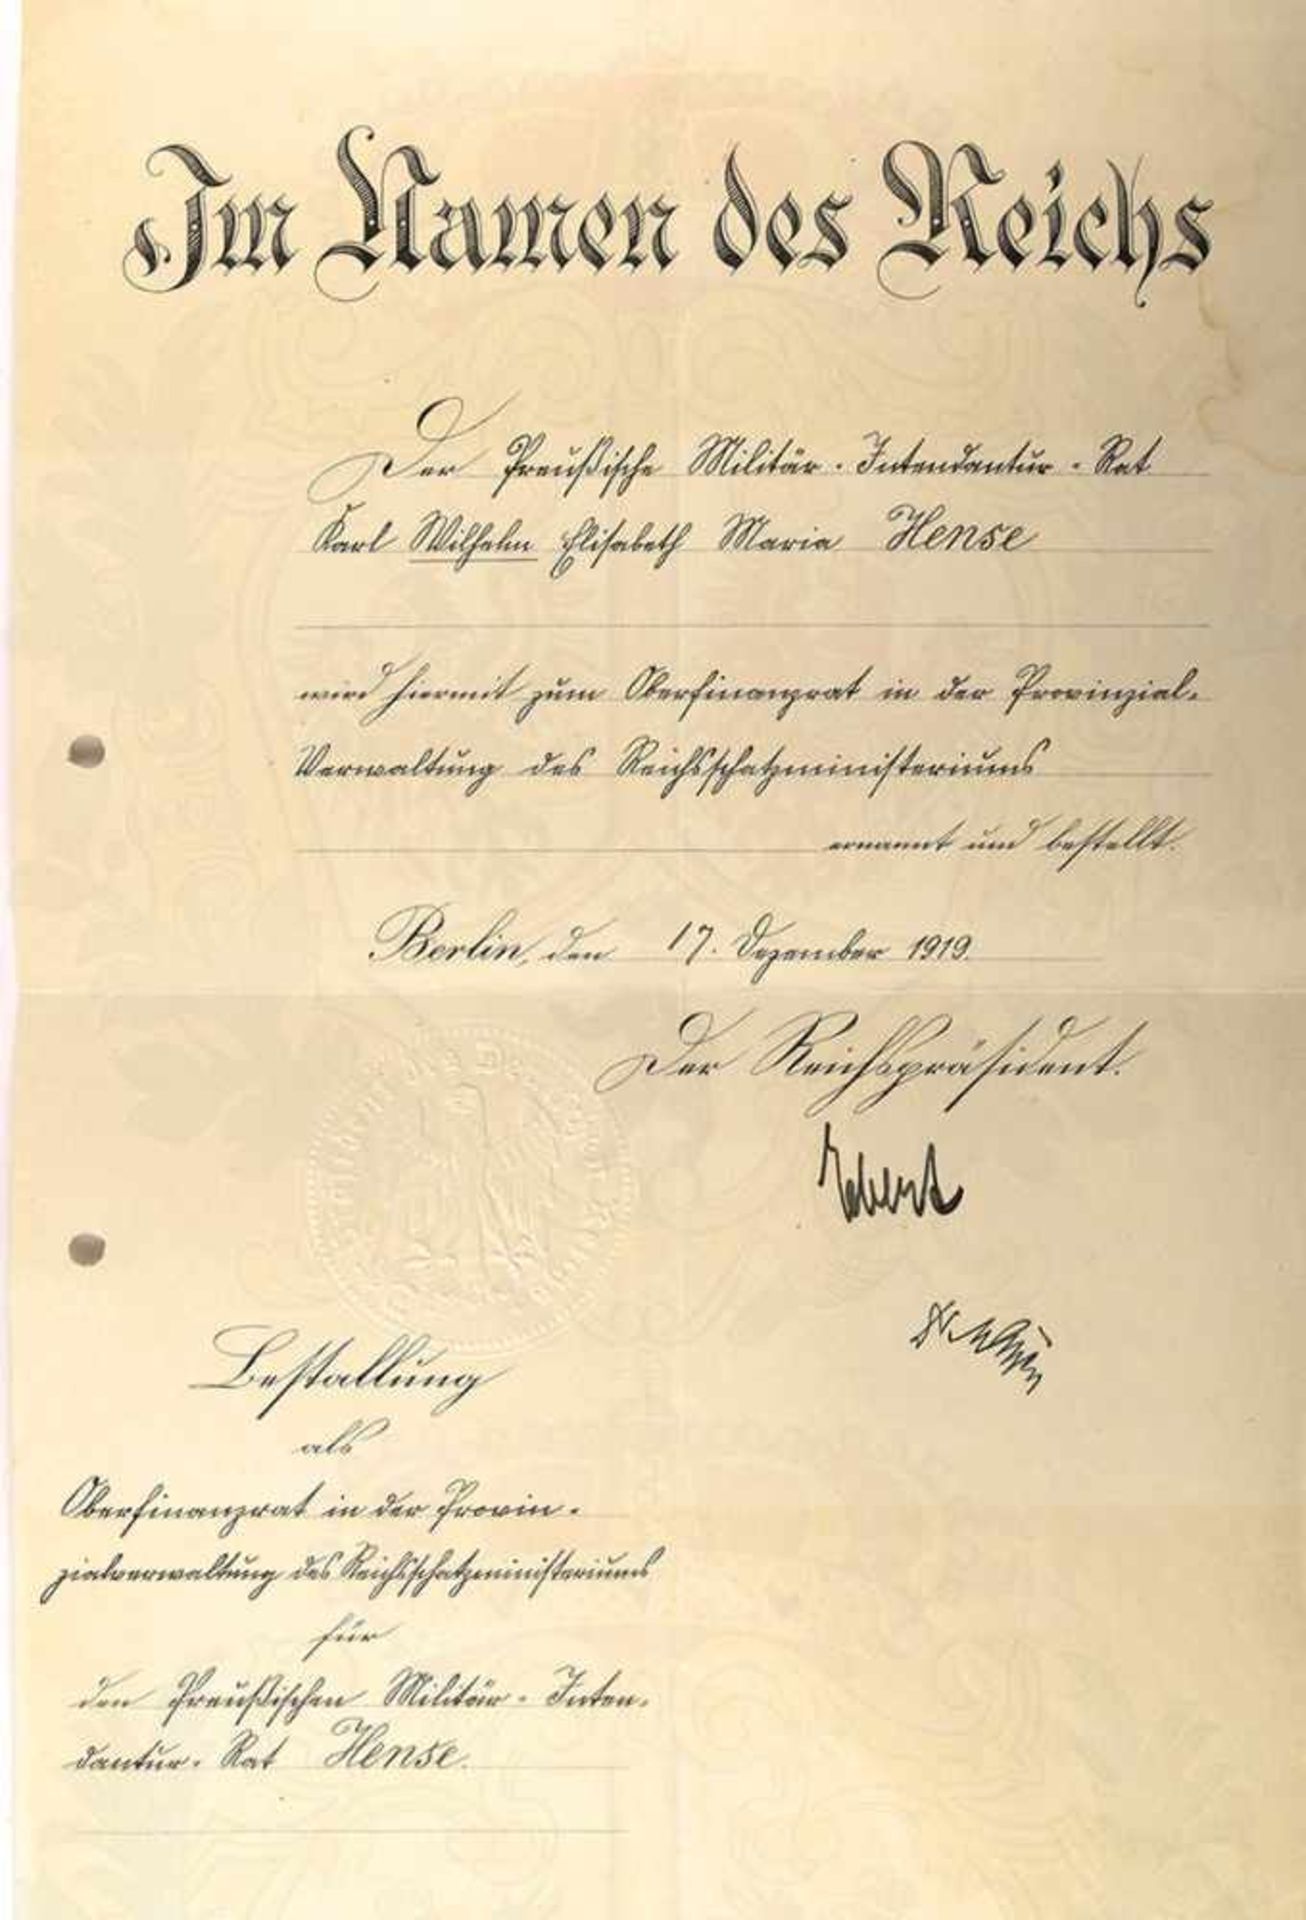 Im Namen des Reichs
Der Preußische Militär-Intendantur-Rat
Karl Wilhelm Elisabeth Maria Hense
wird hiermit zum Oberfinanzrat in der Provinzial-
Verwaltung des Reichsschatzministeriums
ernannt und bestellt.
Berlin, den 17. Dezember 1919.
Der Reichspräsident.
Ebert
Bestallung
als
Oberfinanzrat in der Provin-
zialverwaltung des Reichsschatzministeriums
für
den Preußischen Militär-Inten-
dantur-Rat Hense.